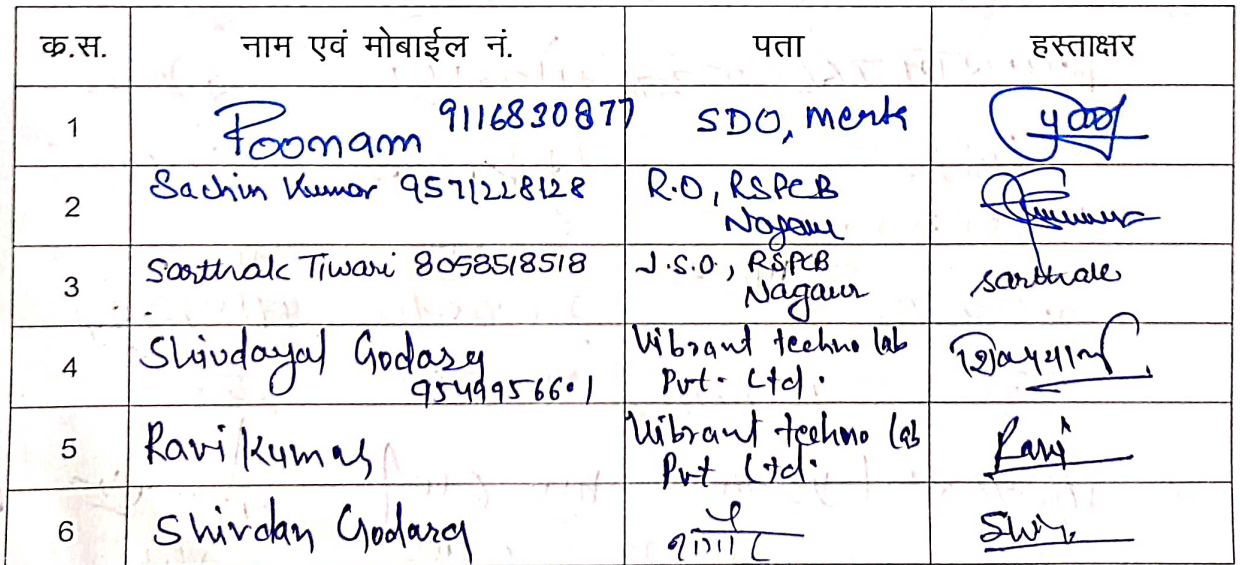 क.स. नाम एवं मोबाईल नं. पता हस्ताक्षर
1 Poonam 9116830877 SDO, Merta
2 Sachin Kumar 9571228128 R.O, RSPCB
Nagaur
3 Sarthak Tiwari 8058518518 J.S.O, RSPCB
Nagaur sarthak
4 Shivdayal Godara Vibrant techno lab
9549956601 Pvt. Ltd.
5 Ravi Kumar Vibrant techno lab
Pvt Ltd. Ravi
6 Shivdan Godara